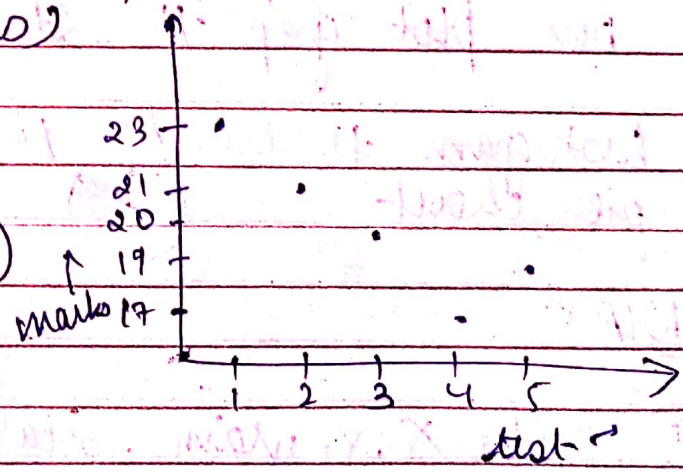 D)
23
21
20
19
marks 17
1 2 3 4 5
test →